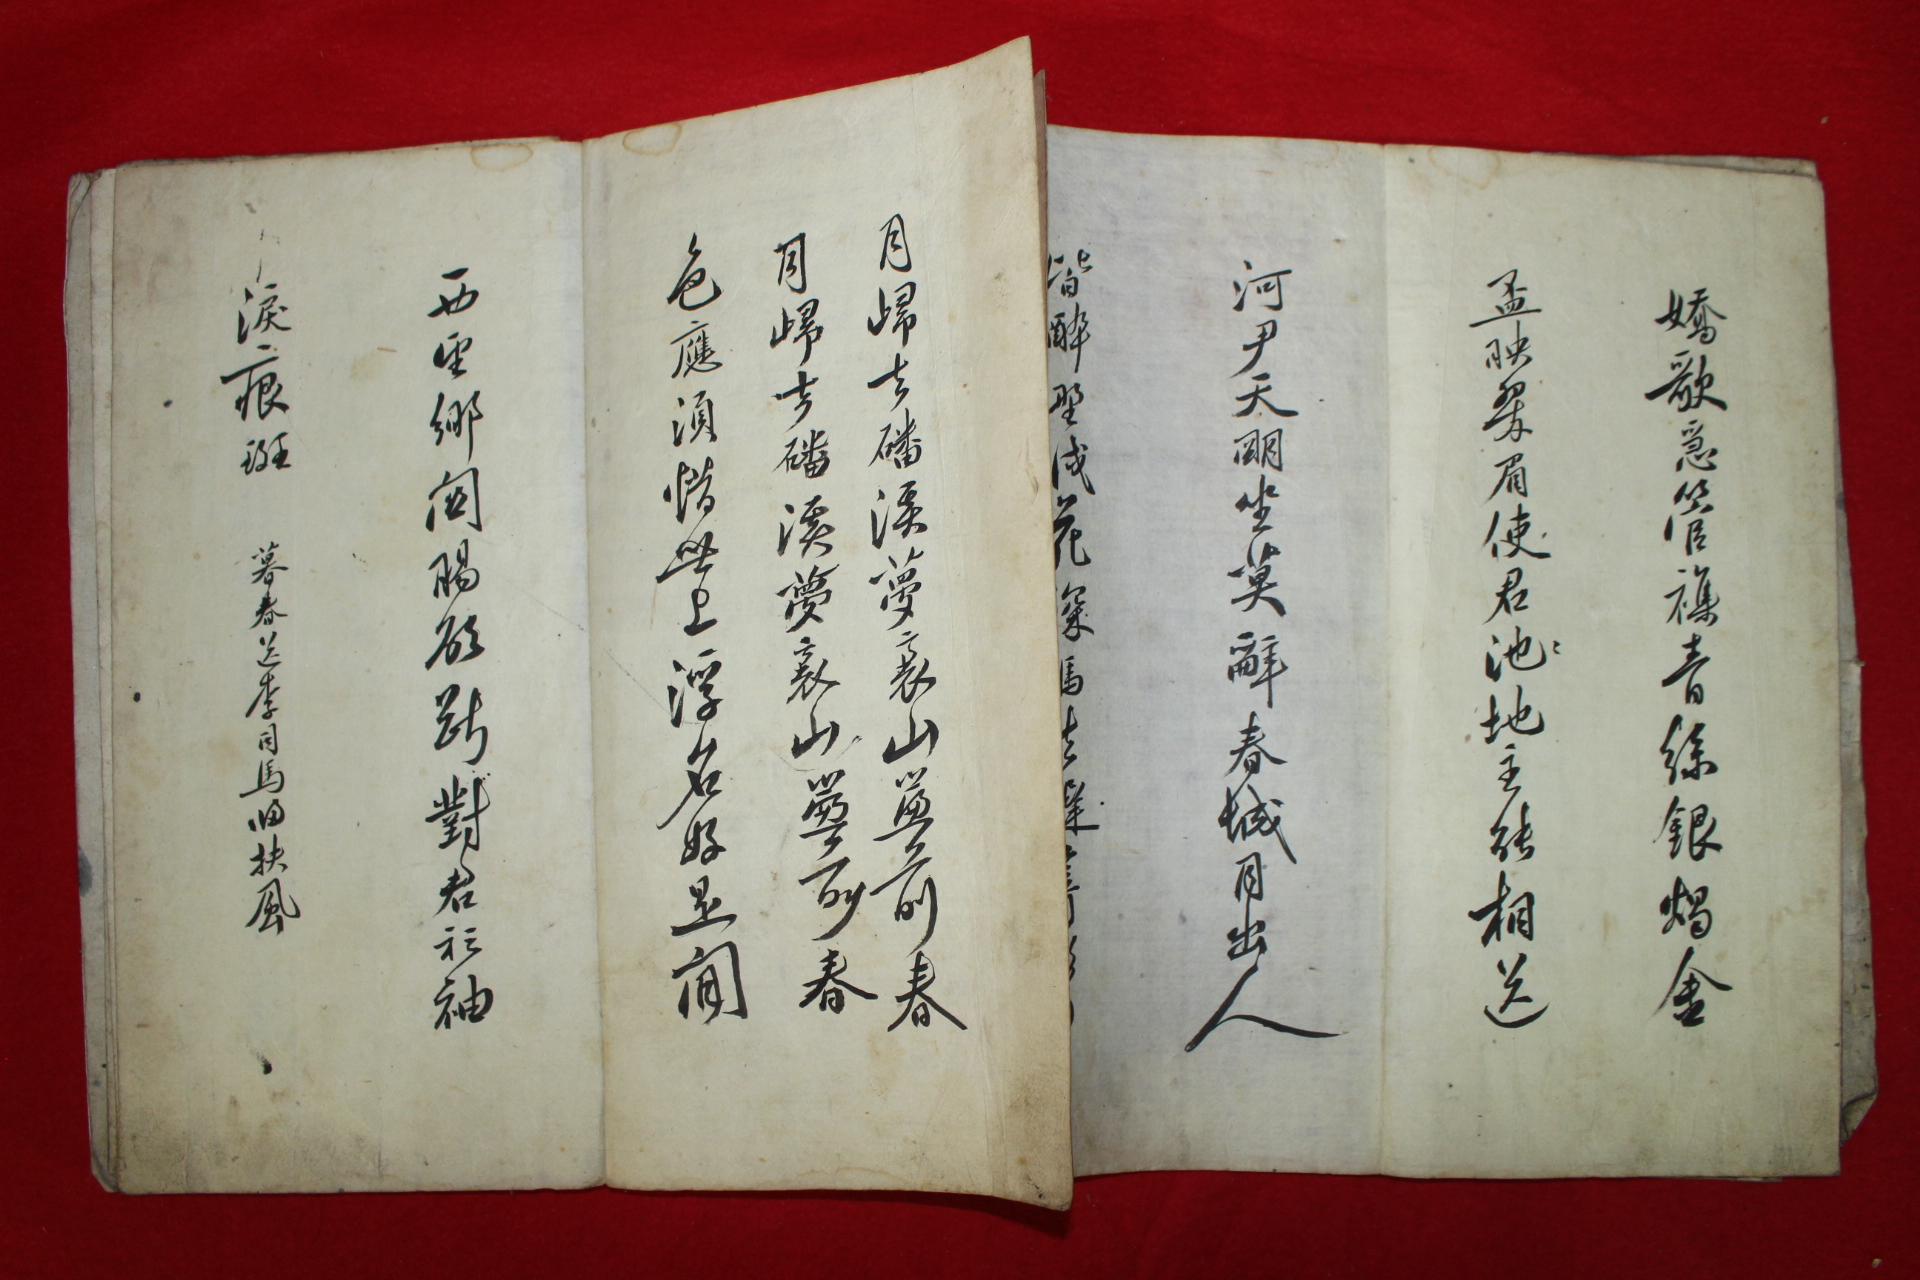 嬌歌急管襍青絲銀燭金
盃映翠眉使君池〻地主能相送
河尹天明坐莫辭春城月出人
皆醉野戍花深馬去遲
月歸去磻溪夢裏山簾前春
月歸去磻溪夢裏山簾前春
色應須惜世上浮名好是閒
西望鄉關腸欲斷對君衫袖
淚痕斑 暮春送李司馬歸扶風